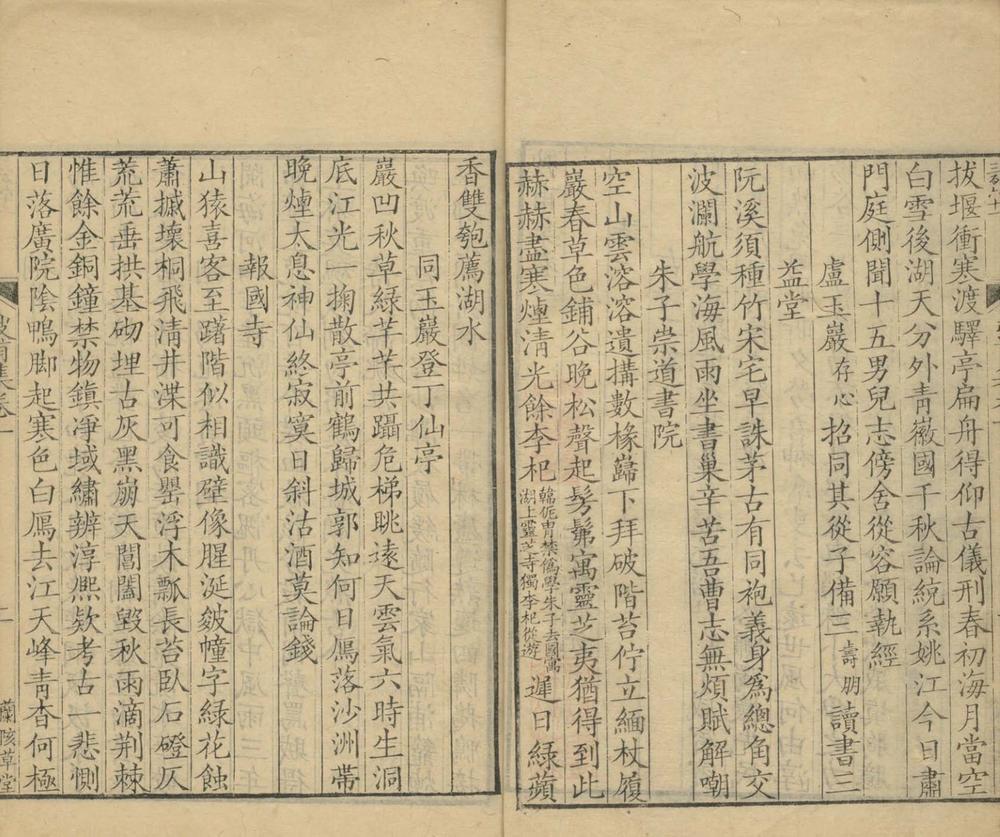 拔堰衝寒渡驛亭扁舟得仰古儀刑春初海月當空
白雪後湖天分外青徽國千秋論統系姚江今日肅
門庭側聞十五男兒志傍舍從容願執經
盧玉巖存心招同其從子備三壽朋讀書三
益堂
阮溪須種竹宋宅早誅茅古有同袍義身爲總角交
波瀾航學海風雨坐書巢辛苦吾曹志無煩賦解嘲
朱子崇道書院
空山雲溶溶遺搆數椽巋下拜破階苔佇立緬杖履
巖春草色鋪谷晚松聲起髣髴寓靈芝夷猶得到此
赫赫盡寒煙清光餘李杞韓侂胄禁僞學朱子去國寓湖上靈芝寺獨李杞從遊遲日綠蘋
香雙匏薦湖水
同玉巖登丁仙亭
巖凹秋草綠芊芊共躡危梯眺遠天雲氣六時生洞
底江光一掬散亭前鶴歸城郭知何日鴈落沙洲帶
晚煙太息神仙終寂寞日斜沽酒莫論錢
報國寺
山猿喜客至躇階似相識壁像腥涎皴幢字綠花蝕
蕭摵壞桐飛清井渫可食罌浮木瓢長苔臥石磴仄
荒荒垂拱基砌埋古灰黑崩天閶闔毀秋雨滴荆棘
惟餘金銅鐘禁物鎮凈域繡辨淳熙欵考古一悲惻
日落廣院陰鴨脚起寒色白鴈去江天峰靑杳何極
蘭陔草堂